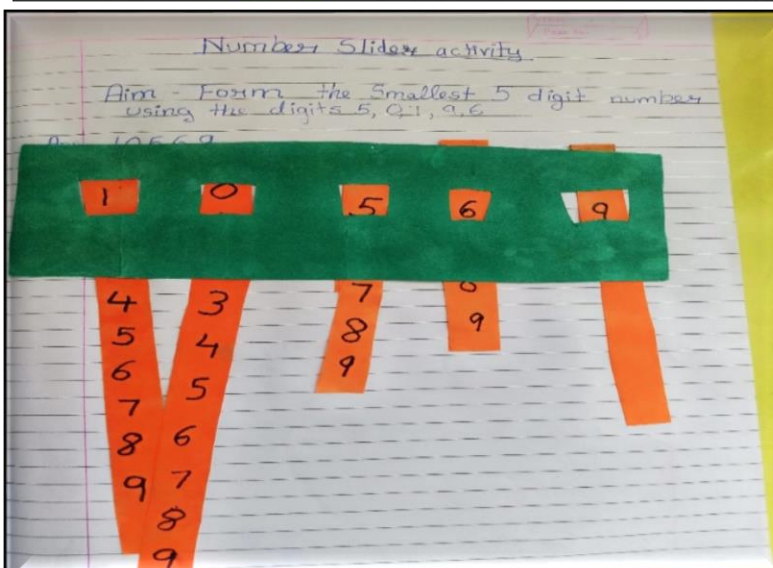 Number Slider activity
Aim - Form the Smallest 5 digit number
using the digits 5, 0, 1, 9, 6
10569
1 0 5 6 9
4 3 7 9
5 4 8
6 5 9
7 6
8 7
9 8
9